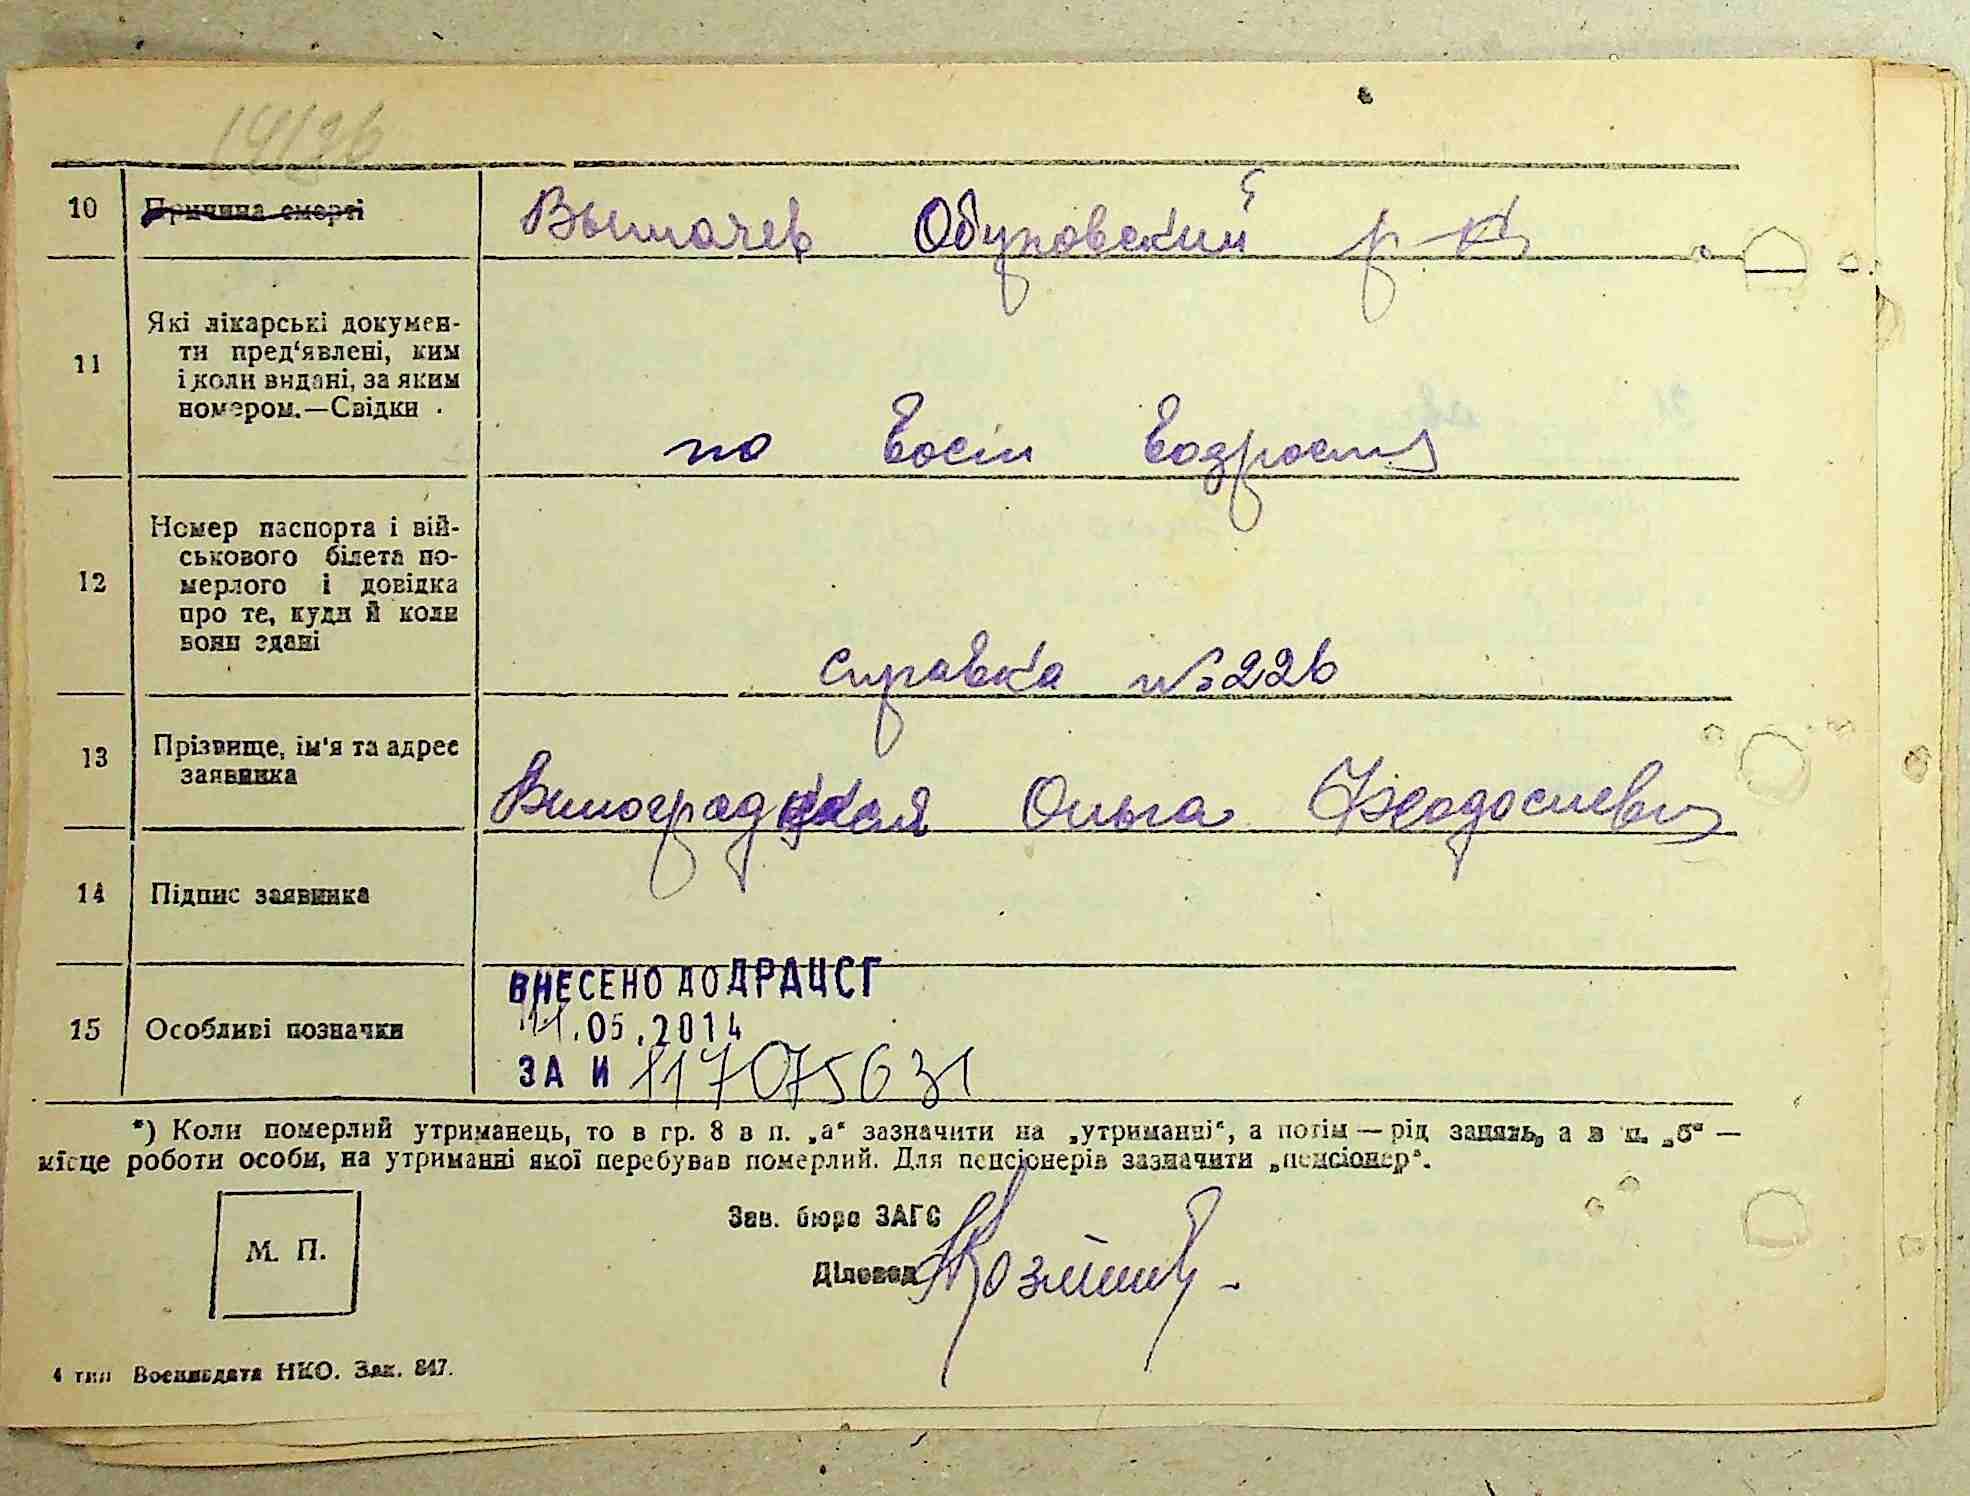 14/26
10 Причина смерті Вытачев Обуховский р-н
11 Які лікарські докумен-
ти пред‘явлені, ким
і коли видані, за яким
номером.—Свідки
по
12 Номер паспорта і вій-
ськового білета по-
мерлого і довідка
про те, куди й коли
вони здані
справка №226
13 Прізвище, ім'я та адрес
заявника
Виноградская Ольга Феодосиевн
14 Підпис заявника
15 Особливі позначки
ВНЕСЕНО ДО ДРАЦСГ
.05.2014
ЗА И 117075631
*) Коли померлий утриманець, то в гр. 8 в п. „а“ зазначити на „утриманні“, а потім — рід занять, а в п. „б“ —
місце роботи особи, на утриманні якої перебував померлий. Для пенсіонерів зазначити „пенсіонер“.
М. П.
Зав. бюро ЗАГС
Діловод
4 тип Воениздата НКО. Зак. 847.